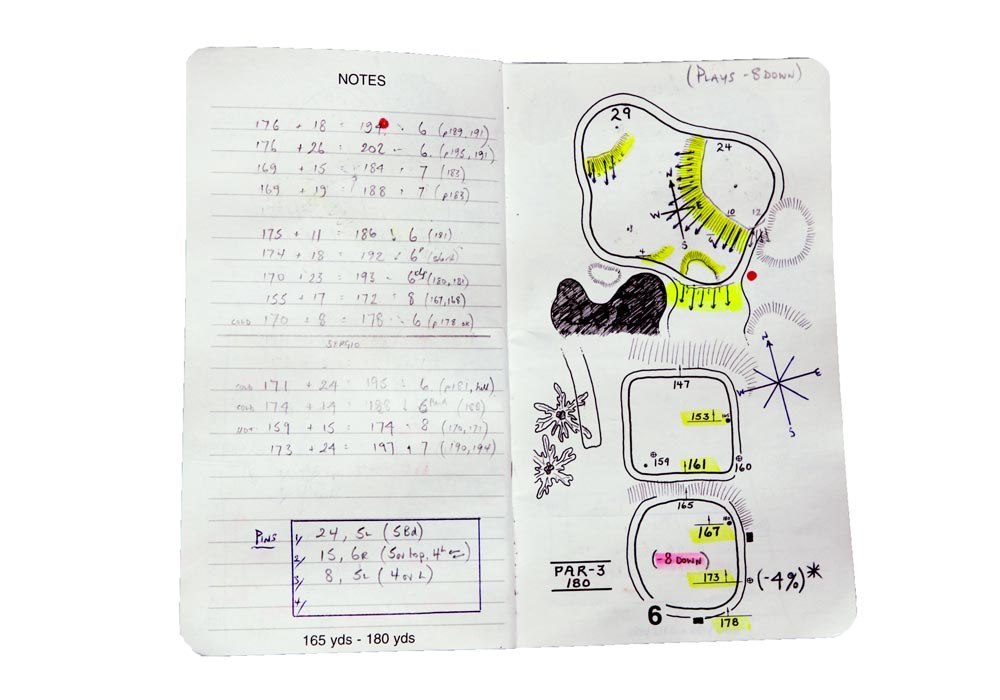 NOTES
176 + 18 = 194 6 (p189, 191)
176 + 26 = 202 - 6 (p195, 191)
169 + 15 = 184 = 7 (183)
169 + 19 = 188 = 7 (p183)
175 + 11 = 186 ↓ 6 (181)
174 + 18 = 192 6
170 + 23 = 193 - 6 (180, 181)
155 + 17 = 172 = 8 (167, 168)
COLD 170 + 8 = 178 6 (p178 ok)
SERGIO
COLD 171 + 24 = 195 = 6 (p181, hill)
COLD 174 + 14 = 188 ↓ 6 (188)
159 + 15 = 174 = 8 (170, 171)
173 + 24 = 197 7 (190, 194)
PINS
1/ 24, 5L (5Bd)
2/ 15, 6R (5ov top, 4L ←)
3/ 8, 5L (4 ov L)
4/
165 yds - 180 yds
(PLAYS -8 DOWN)
29
24
N
W E
S
10 12
6
4
N
W E
S
147
153
159 161 160
165
167
(-8 DOWN)
173 (-4%)*
PAR-3
180
6
178